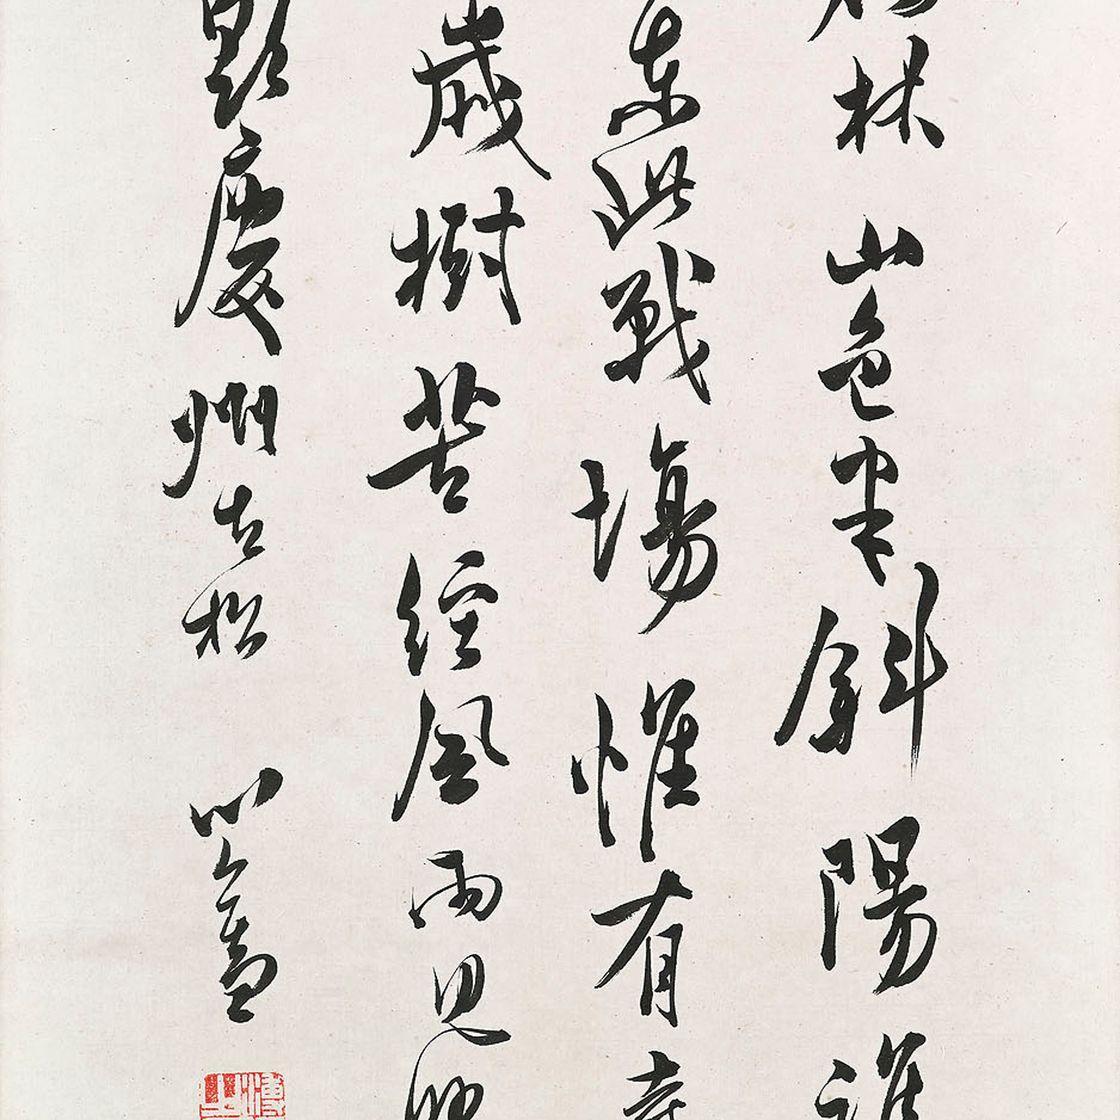 林山色半斜陽
東戰場惟有
歲樹苦經風雨見
慶州古松 心畬